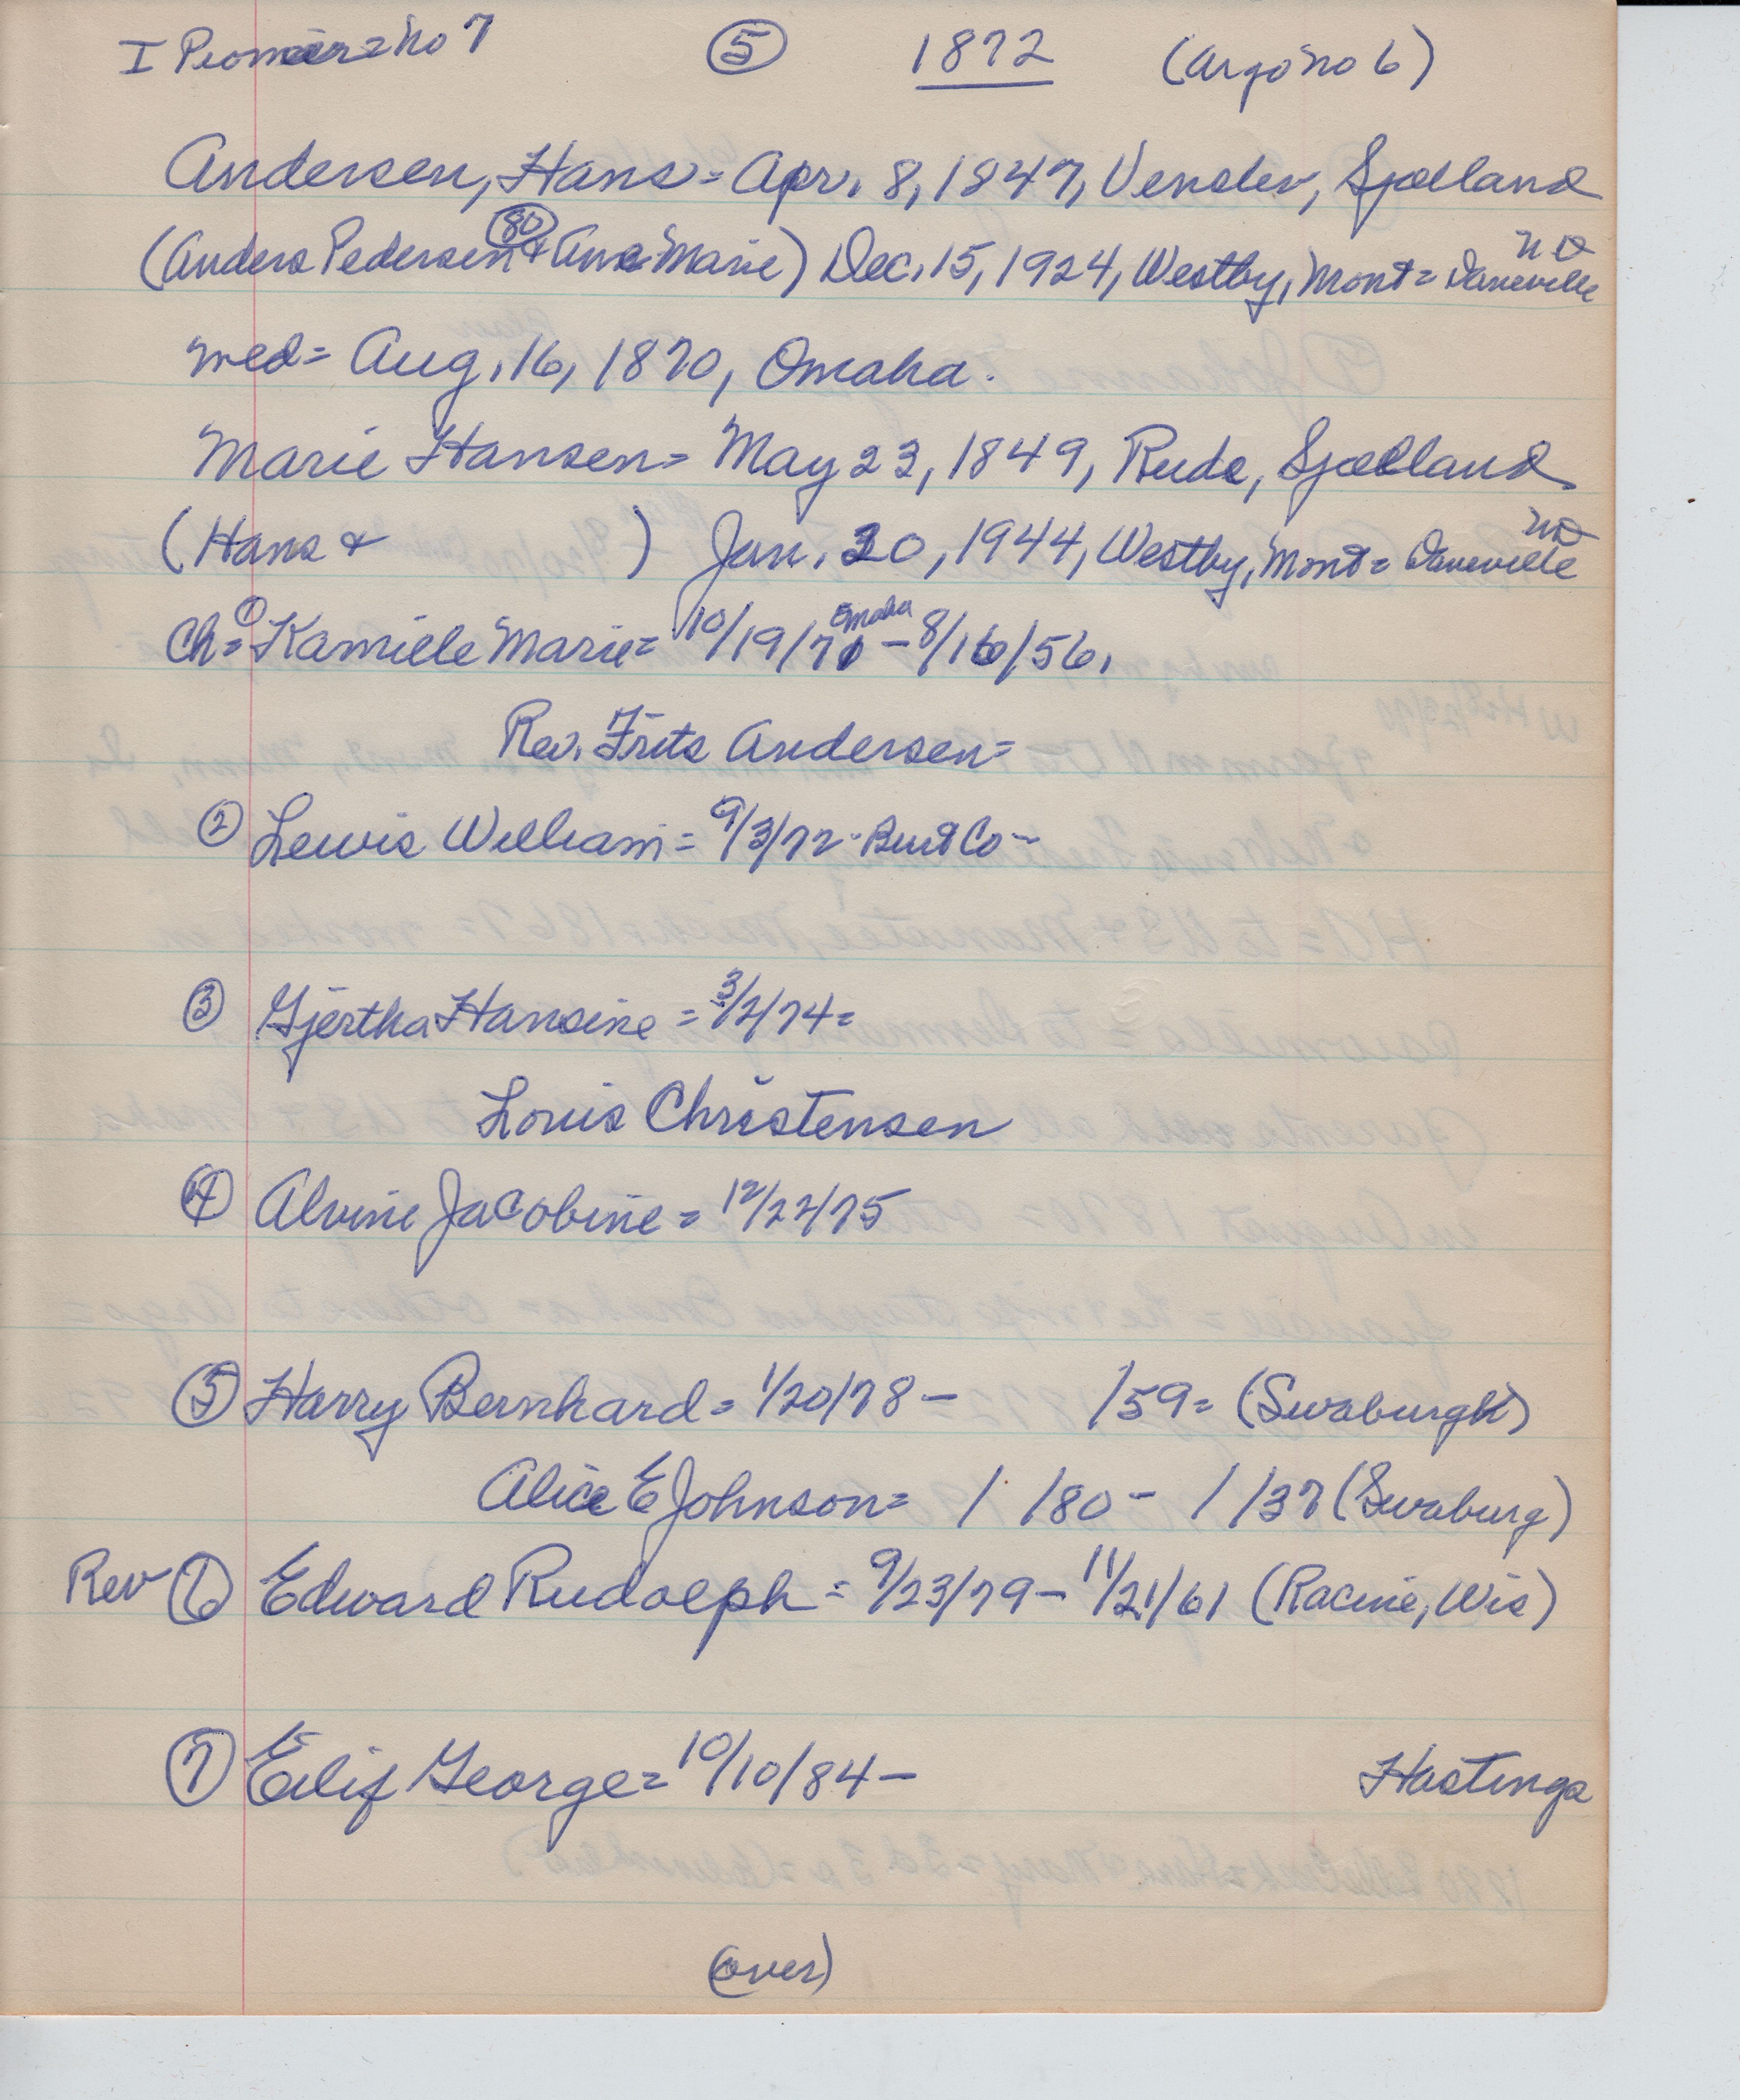 I Pioneer = No 7 (5) 1872 (Argo no 6)
Andersen, Hans = Apr. 8, 1847, Venslev, Sjælland
(Anders Pedersen (80) & Ane Marie) Dec. 15, 1924, Westby, Mont = Daneville ND
med = Aug. 16, 1870, Omaha.
Marie Hansen = May 23, 1849, Rude, Sjælland
(Hans & ) Jan. 20, 1944, Westby, Mont = Daneville ND
Ch = (1) Kamiele Marie = 10/19/71 Omaha - 8/16/56.
Rev. Frits Andersen =
(2) Lewis William = 9/3/72 - Burt Co -
(3) Gjertha Hansine = 3/2/74 =
Louis Christensen
(4) Alvine Jacobine = 12/22/75
(5) Harry Bernhard = 1/20/78 - /59 = (Swaburgh)
Alice E Johnson = / /80 - / /37 (Swaburg)
Rev (6) Edward Rudolph = 9/23/79 - 11/21/61 (Racine, Wis)
(7) Eilif George = 10/10/84 - Hastings
(over)